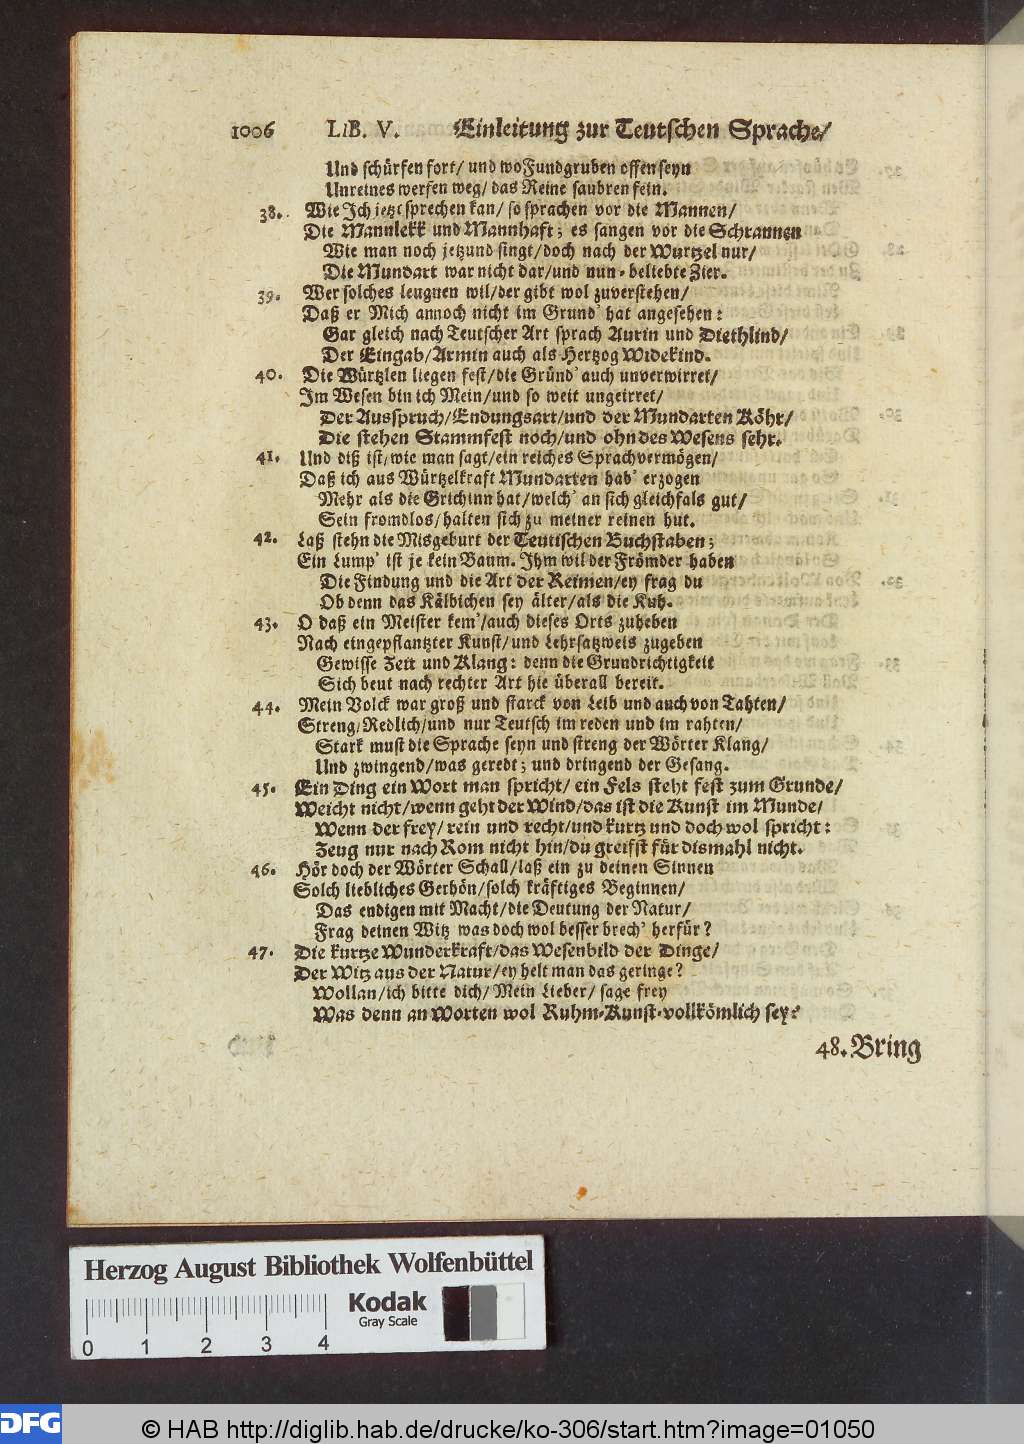 1006 LIB. V. Einleitung zur Teutschen Sprache/
Und schürfen fort/ und wo Fundgruben offen seyn
Unreines werfen weg/ das Reine saubren fein.
38. Wie Ich jetzt sprechen kan/ so sprachen vor die Mannen/
Die Mannlekk und Mannhaft; es sangen vor die Schrannen
Wie man noch jetzund singt/ doch nach der Wurtzel nur/
Die Mundart war nicht dar/ und nun-beliebte Zier.
39. Wer solches leugnen wil/ der gibt wol zuverstehen/
Daß er Mich annoch nicht im Grund' hat angesehen:
Gar gleich nach Teutscher Art sprach Aurin und Diethlind/
Der Eingab/ Armin auch als Hertzog Widekind.
40. Die Würtzlen liegen fest/ die Gründ' auch unverwirret/
Im Wesen bin ich Mein/ und so weit ungeirret/
Der Ausspruch/ Endungsart/ und der Mundarten Köhr/
Die stehen Stammfest noch/ und ohn des Wesens sehr.
41. Und diß ist/ wie man sagt/ ein reiches Sprachvermögen/
Daß ich aus Würtzelkraft Mundarten hab' erzogen
Mehr als die Grichinn hat/ welch' an sich gleichfals gut/
Sein fromdlos/ halten sich zu meiner reinen hut.
42. Laß stehn die Misgeburt der Teutischen Buchstaben;
Ein Lump' ist je kein Baum. Ihm wil der Frömder haben
Die Findung und die Art der Reimen/ ey frag du
Ob denn das Kälbichen sey älter/ als die Kuh.
43. O daß ein Meister kem'/ auch dieses Orts zuheben
Nach eingepflantzter Kunst/ und Lehrsatzweis zugeben
Gewisse Zeit und Klang: denn die Grundrichtigkeit
Sich beut nach rechter Art hie überall bereit.
44. Mein Volck war groß und starck von Leib und auch von Tahten/
Streng/ Redlich/ und nur Teutsch im reden und im rahten/
Stark must die Sprache seyn und streng der Wörter Klang/
Und zwingend/ was geredt; und dringend der Gesang.
45. Ein Ding ein Wort man spricht/ ein Fels steht fest zum Grunde/
Weicht nicht/ wenn geht der Wind/ das ist die Kunst im Munde/
Wenn der frey/ rein und recht/ und kurtz und doch wol spricht:
Zeug nur nach Rom nicht hin/ du greifst für dismahl nicht.
46. Hör doch der Wörter Schall/ laß ein zu deinen Sinnen
Solch liebliches Gethön/ solch kräftiges Beginnen/
Das endigen mit Macht/ die Deutung der Natur/
Frag deinen Witz was doch wol besser brech' herfür?
47. Die kurtze Wunderkraft/ das Wesenbild der Dinge/
Der Witz aus der Natur/ ey helt man das geringe?
Wollan/ ich bitte dich/ Mein Lieber/ sage frey
Was denn an Worten wol Ruhm-Kunst-vollkömlich sey?
48. Bring
Herzog August Bibliothek Wolfenbüttel
Kodak
Gray Scale
0 1 2 3 4
DFG © HAB http://diglib.hab.de/drucke/ko-306/start.htm?image=01050